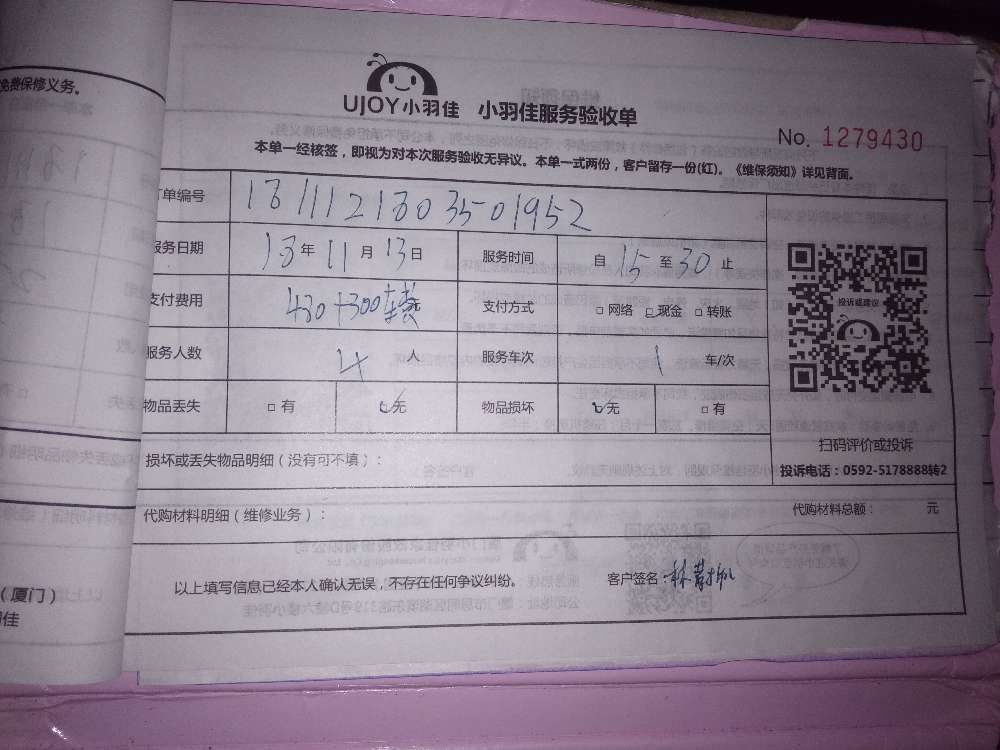 免费保修义务。
UJOY小羽佳 小羽佳服务验收单
No. 1279430
本单一经核签，即视为对本次服务验收无异议。本单一式两份，客户留存一份(红)。《维保须知》详见背面。
订单编号 1811121803501952
服务日期 18年 11月 13日 服务时间 自 15 至 30 止
支付费用 430+300车费 支付方式 □网络 □现金 □转账
投诉或建议
服务人数 4 人 服务车次 1 车/次
物品丢失 □有 ☑无 物品损坏 ☑无 □有
扫码评价或投诉
损坏或丢失物品明细（没有可不填）：
投诉电话：0592-5178888转2
代购材料明细（维修业务）： 代购材料总额： 元
以上填写信息已经本人确认无误，不存在任何争议纠纷。 客户签名：
（厦门）
佳